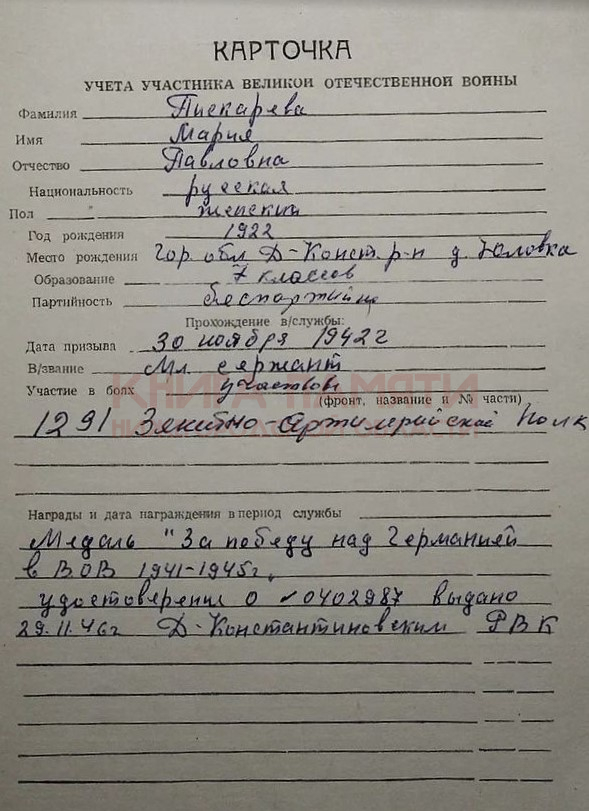 КАРТОЧКА
УЧЕТА УЧАСТНИКА ВЕЛИКОЙ ОТЕЧЕСТВЕННОЙ ВОЙНЫ
Фамилия Пискарева
Имя Мария
Отчество Павловна
Национальность русская
Пол женский
Год рождения 1922
Место рождения Гор. обл Д-Конст. р-н д.
Образование 7 классов
Партийность
Прохождение в/службы:
Дата призыва 30 ноября 1942 г
В/звание Мл. сержант
Участие в боях участвов
КНИГА ПАМЯТИ
(фронт, название и № части)
1291 Зенитно-Артилерийский полк
Награды и дата награждения в период службы
Медаль "За победу над Германией
в ВОВ 1941-1945г.
удостоверение О 0402987 выдано
29.11.46г Д-Константиновским РВК